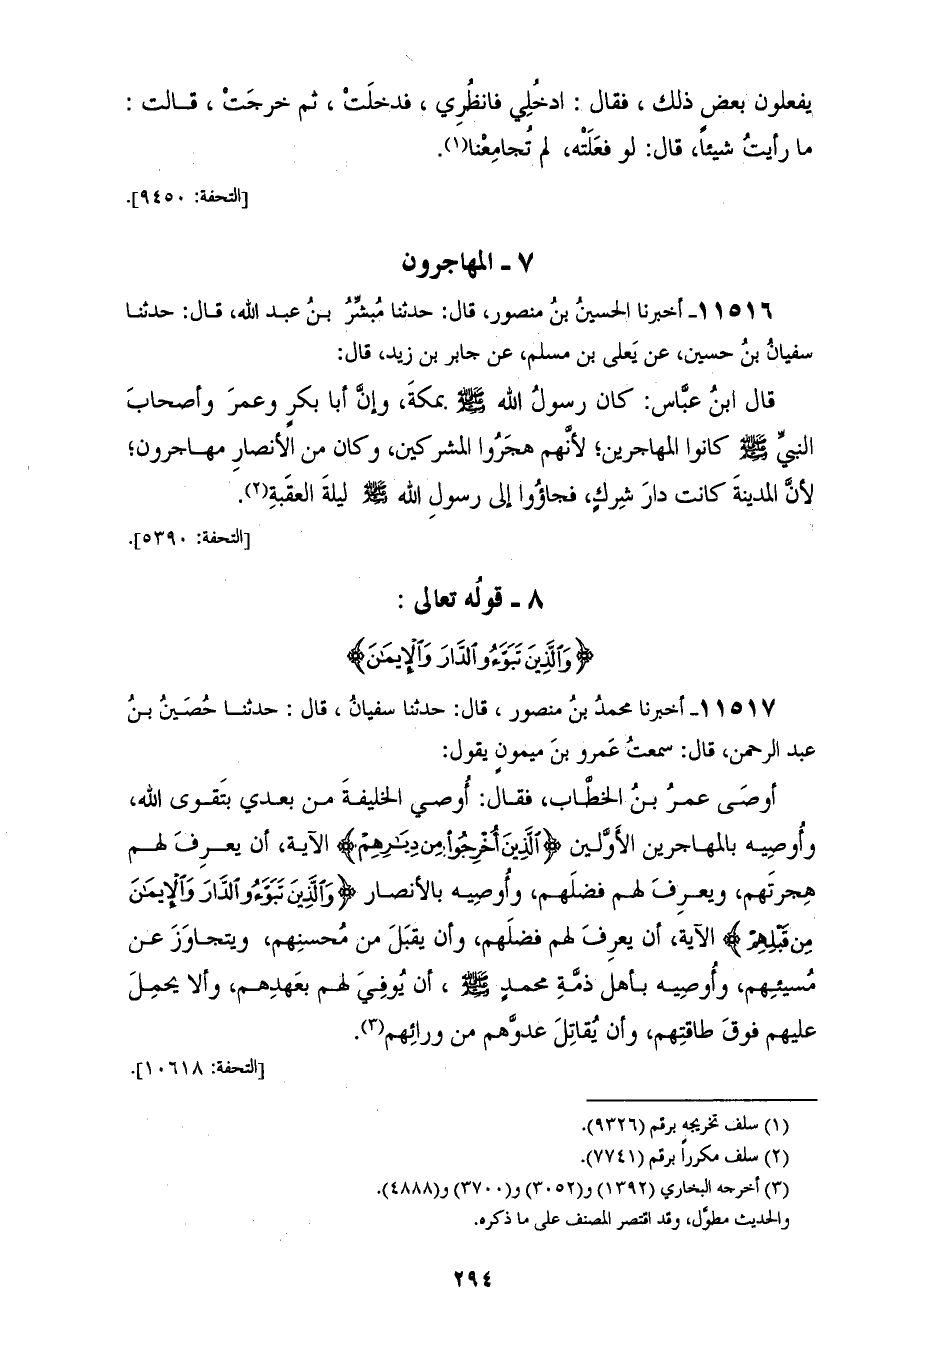 يفعلون بعض ذلك ، فقال : ادخُلِي فانظُرِي ، فدخلَتْ ، ثم خرجَتْ ، قـالت :
ما رأيتُ شيئاً، قال: لو فعَلَتْه، لم تُجامِعْنا(١).
[التحفة: ٩٤٥٠].
٧ ـ المهاجرون
١١٥١٦ـ أخبرنا الحسينُ بنُ منصور، قال: حدثنا مُبشِّرُ بـنُ عبد الله، قـال: حدثنـا
سفيانُ بنُ حسين، عن يَعلى بن مسلم، عن جابر بن زيد، قال:
قال ابنُ عبَّاس: كان رسولُ الله ﷺ بمكةَ، وإنَّ أبا بكرٍ وعمرَ وأصحابَ
النبيِّ ﷺ كانوا المهاجرين؛ لأنَّهم هجَرُوا المشركين، وكان من الأنصارِ مهـاجرون؛
لأنَّ المدينةَ كانت دارَ شِركٍ، فجاؤُوا إلى رسولِ الله ﷺ ليلةَ العقَبةِ(٢).
[التحفة: ٥٣٩٠].
٨ ـ قولُه تعالى :
﴿وَٱلَّذِينَ تَبَوَّءُو ٱلدَّارَ وَٱلْإِيمَٰنَ﴾
١١٥١٧ـ أخبرنا محمدُ بنُ منصور ، قال: حدثنا سفيانُ ، قال : حدثنـا حُصَـينُ بـنُ
عبد الرحمن، قال: سمعتُ عَمرو بنَ ميمونٍ يقول:
أوصَى عمرُ بـنُ الخطَّاب، فقـال: أُوصي الخليفـةَ مـن بعـدي بتَقـوى الله،
وأُوصِيه بالمهـاجرين الأوَّلـين ﴿ٱلَّذِينَ أُخْرِجُوا۟ مِن دِيَٰرِهِمْ﴾ الآية، أن يعـرِفَ لهـم
هِجرتَهم، ويعـرِفَ لهـم فضلَهم، وأُوصِيه بالأنصـار ﴿وَٱلَّذِينَ تَبَوَّءُو ٱلدَّارَ وَٱلْإِيمَٰنَ
مِن قَبْلِهِمْ﴾ الآية، أن يعرِفَ لهم فضلَهم، وأن يقبَلَ من مُحسنِهم، ويتجـاوَزَ عـن
مُسيئِهم، وأُوصِيـه بـأهل ذمَّـةِ محمـدٍ ﷺ ، أن يُوفِيَ لهـم بعَهدِهـم، وألا يحمِلَ
عليهم فوقَ طاقتِهم، وأن يُقاتِلَ عدوَّهم من ورائِهم(٣).
[التحفة: ١٠٦١٨].
(١) سلف تخريجه برقم (٩٣٢٦).
(٢) سلف مكرراً برقم (٧٧٤١).
(٣) أخرجه البخاري (١٣٩٢) و(٣٠٥٢) و(٣٧٠٠) و(٤٨٨٨).
والحديث مطوَّل، وقد اقتصر المصنف على ما ذكره.
٢٩٤